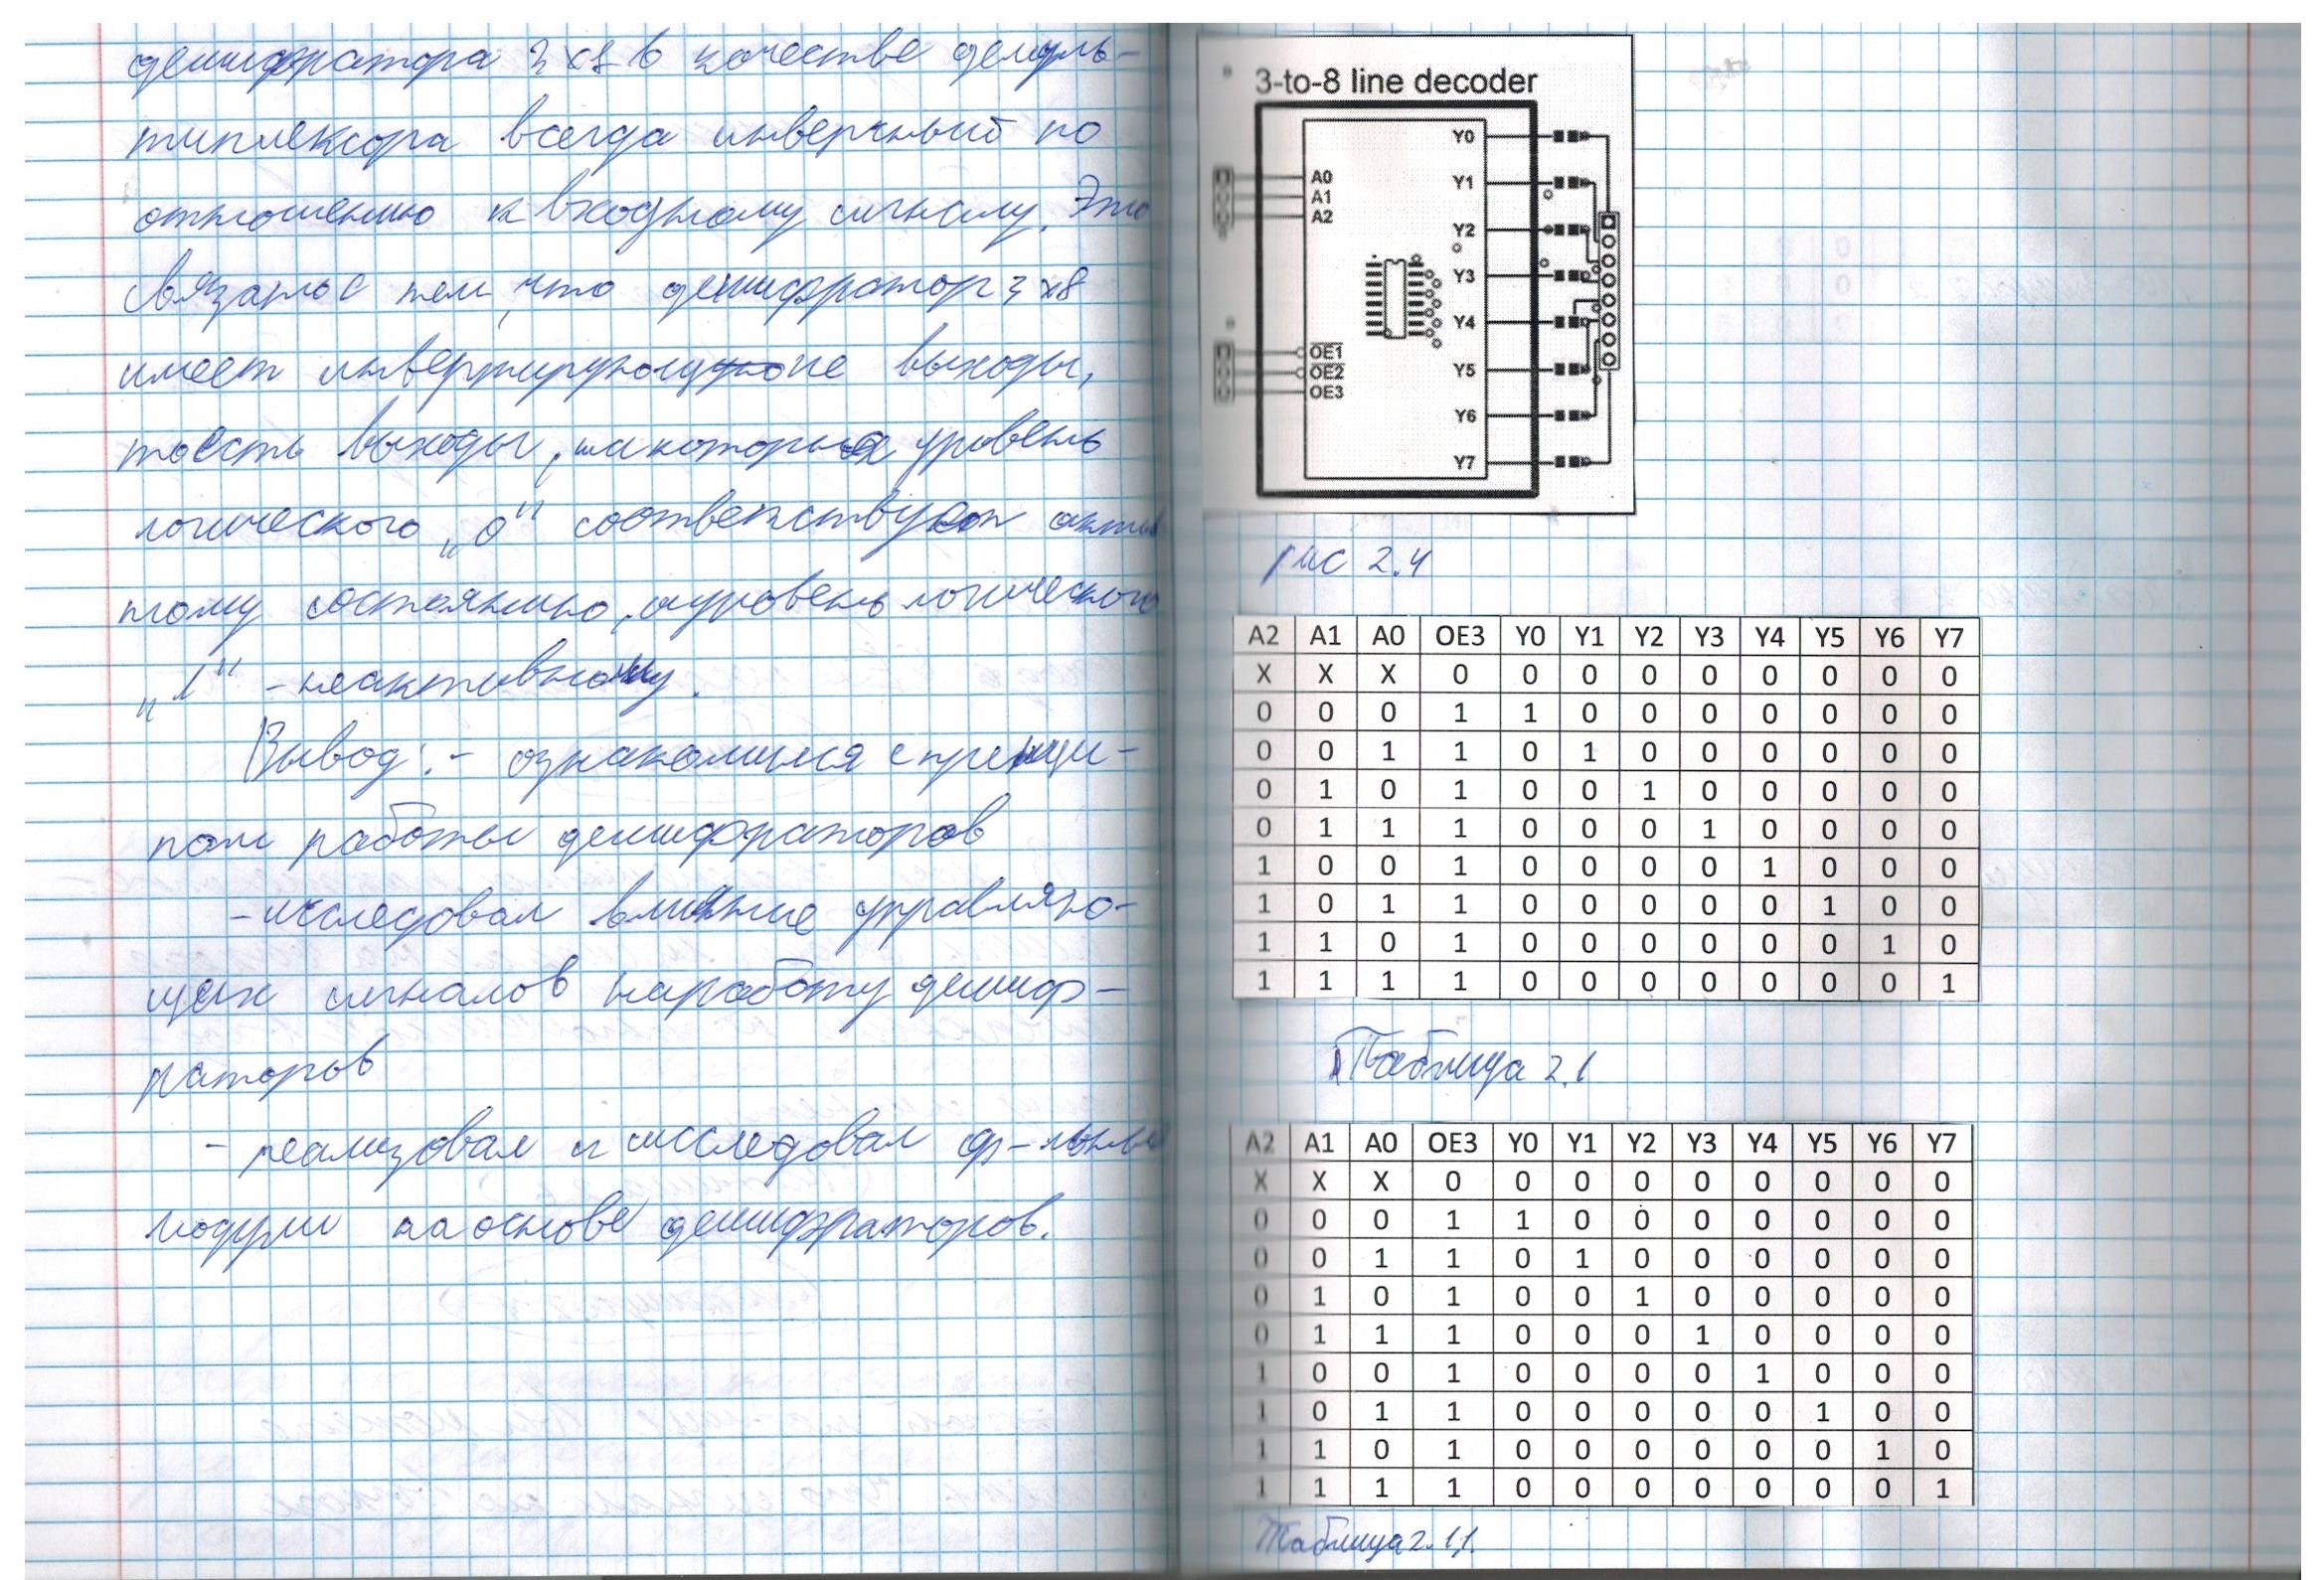 дешифратора 3х8 в качестве демуль-
типлексора всегда инверсный по
отношению к входному сигналу. Это
связано с тем, что дешифратор 3х8
имеет инвертирующие выходы,
тоесть выходы, на которых уровень
логического „0" соответствует актив
ному состоянию, а уровень логического
„1" - неактивному.
Вывод: - ознакомился с принци-
пом работы дешифраторов
- исследовал влияние управляю-
щих сигналов на работу дешиф-
раторов
- реализовал и исследовал ф-льные
модули на основе дешифраторов.
3-to-8 line decoder
Y0
A0 Y1
A1
A2 Y2
Y3
Y4
OE1
OE2 Y5
OE3
Y6
Y7
рис 2.4
A2 A1 A0 OE3 Y0 Y1 Y2 Y3 Y4 Y5 Y6 Y7
X X X 0 0 0 0 0 0 0 0 0
0 0 0 1 1 0 0 0 0 0 0 0
0 0 1 1 0 1 0 0 0 0 0 0
0 1 0 1 0 0 1 0 0 0 0 0
0 1 1 1 0 0 0 1 0 0 0 0
1 0 0 1 0 0 0 0 1 0 0 0
1 0 1 1 0 0 0 0 0 1 0 0
1 1 0 1 0 0 0 0 0 0 1 0
1 1 1 1 0 0 0 0 0 0 0 1
Таблица 2.1
A2 A1 A0 OE3 Y0 Y1 Y2 Y3 Y4 Y5 Y6 Y7
X X X 0 0 0 0 0 0 0 0 0
0 0 0 1 1 0 0 0 0 0 0 0
0 0 1 1 0 1 0 0 0 0 0 0
0 1 0 1 0 0 1 0 0 0 0 0
0 1 1 1 0 0 0 1 0 0 0 0
1 0 0 1 0 0 0 0 1 0 0 0
1 0 1 1 0 0 0 0 0 1 0 0
1 1 0 1 0 0 0 0 0 0 1 0
1 1 1 1 0 0 0 0 0 0 0 1
Таблица 2.1.1.